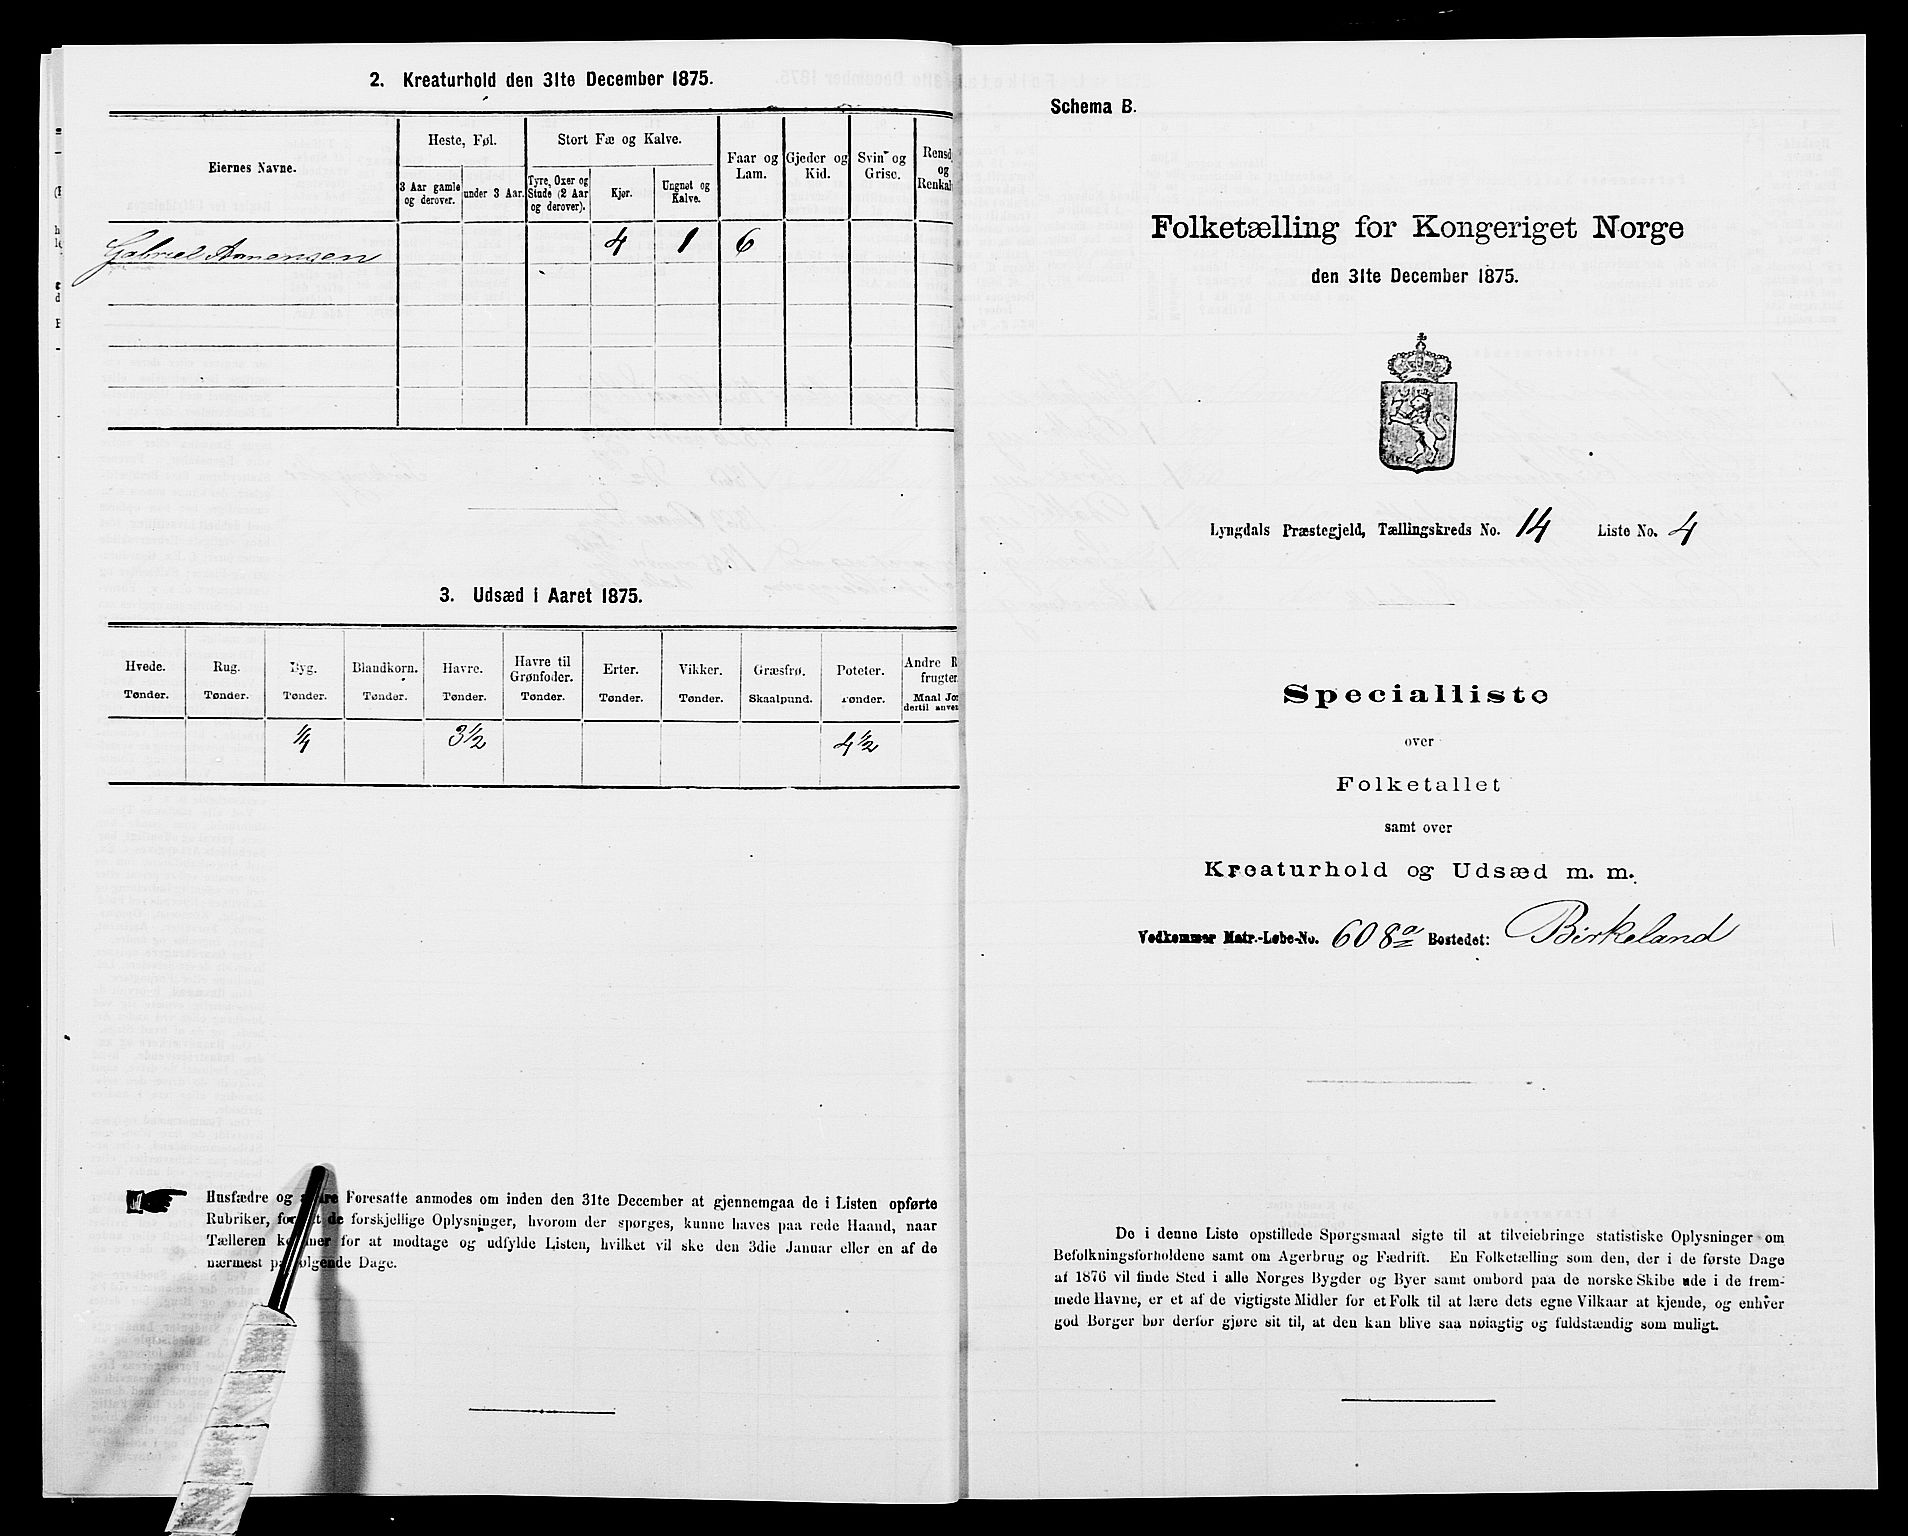 2. Kreaturhold den 31te December 1875.
Eiernes Navne.
Heste, Føl.
Stort Fæ og Kalve.
Faar og Lam.
Gjeder og Kid.
Svin og Grise.
Rensd
og
Renkal
3 Aar gamle og derover.
under 3 Aar.
Tyre, Oxer og Stude (2 Aar og derover).
Kjør.
Ungnøt og Kalve.
Gabriel Asmensen 4 1 6
3. Udsæd i Aaret 1875.
Hvede. Rug. Byg. Blandkorn. Havre. Havre til Grønfoder. Erter. Vikker. Græsfrø. Poteter. Andre R
frugter
Tønder. Tønder. Tønder. Tønder. Tønder. Tønder. Tønder. Tønder. Skaalpund. Tønder. Maal Jor
dertil anven
1/4 3 1/2 4 1/2
Husfædre og andre Foresatte anmodes om inden den 31te December at gjennemgaa de i Listen opførte
Rubriker, for at de forskjellige Oplysninger, hvorom der spørges, kunne haves paa rede Haand, naar
Tælleren kommer for at modtage og udfylde Listen, hvilket vil ske den 3die Januar eller en af de
nærmest paafølgende Dage.
Schema B.
Folketælling for Kongeriget Norge
den 31te December 1875.
Lyngdals Præstegjeld, Tællingskreds No. 14 Liste No. 4
Specialliste
over
Folketallet
samt over
Kreaturhold og Udsæd m. m.
Vedkommer Matr.-Løbe-No. 608a Bostedet: Birkeland
De i denne Liste opstillede Spørgsmaal sigte til at tilveiebringe statistiske Oplysninger om
Befolkningsforholdene samt om Agerbrug og Fædrift. En Folketælling som den, der i de første Dage
af 1876 vil finde Sted i alle Norges Bygder og Byer samt ombord paa de norske Skibe ude i de frem-
mede Havne, er et af de vigtigste Midler for et Folk til at lære dets egne Vilkaar at kjende, og enhver
god Borger bør derfor gjøre sit til, at den kan blive saa nøiagtig og fuldstændig som muligt.